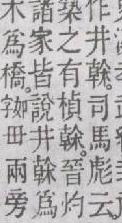 作井榦司馬彪云
築之有楨榦晉灼
諸家皆說井榦爲
木爲橋。兩旁